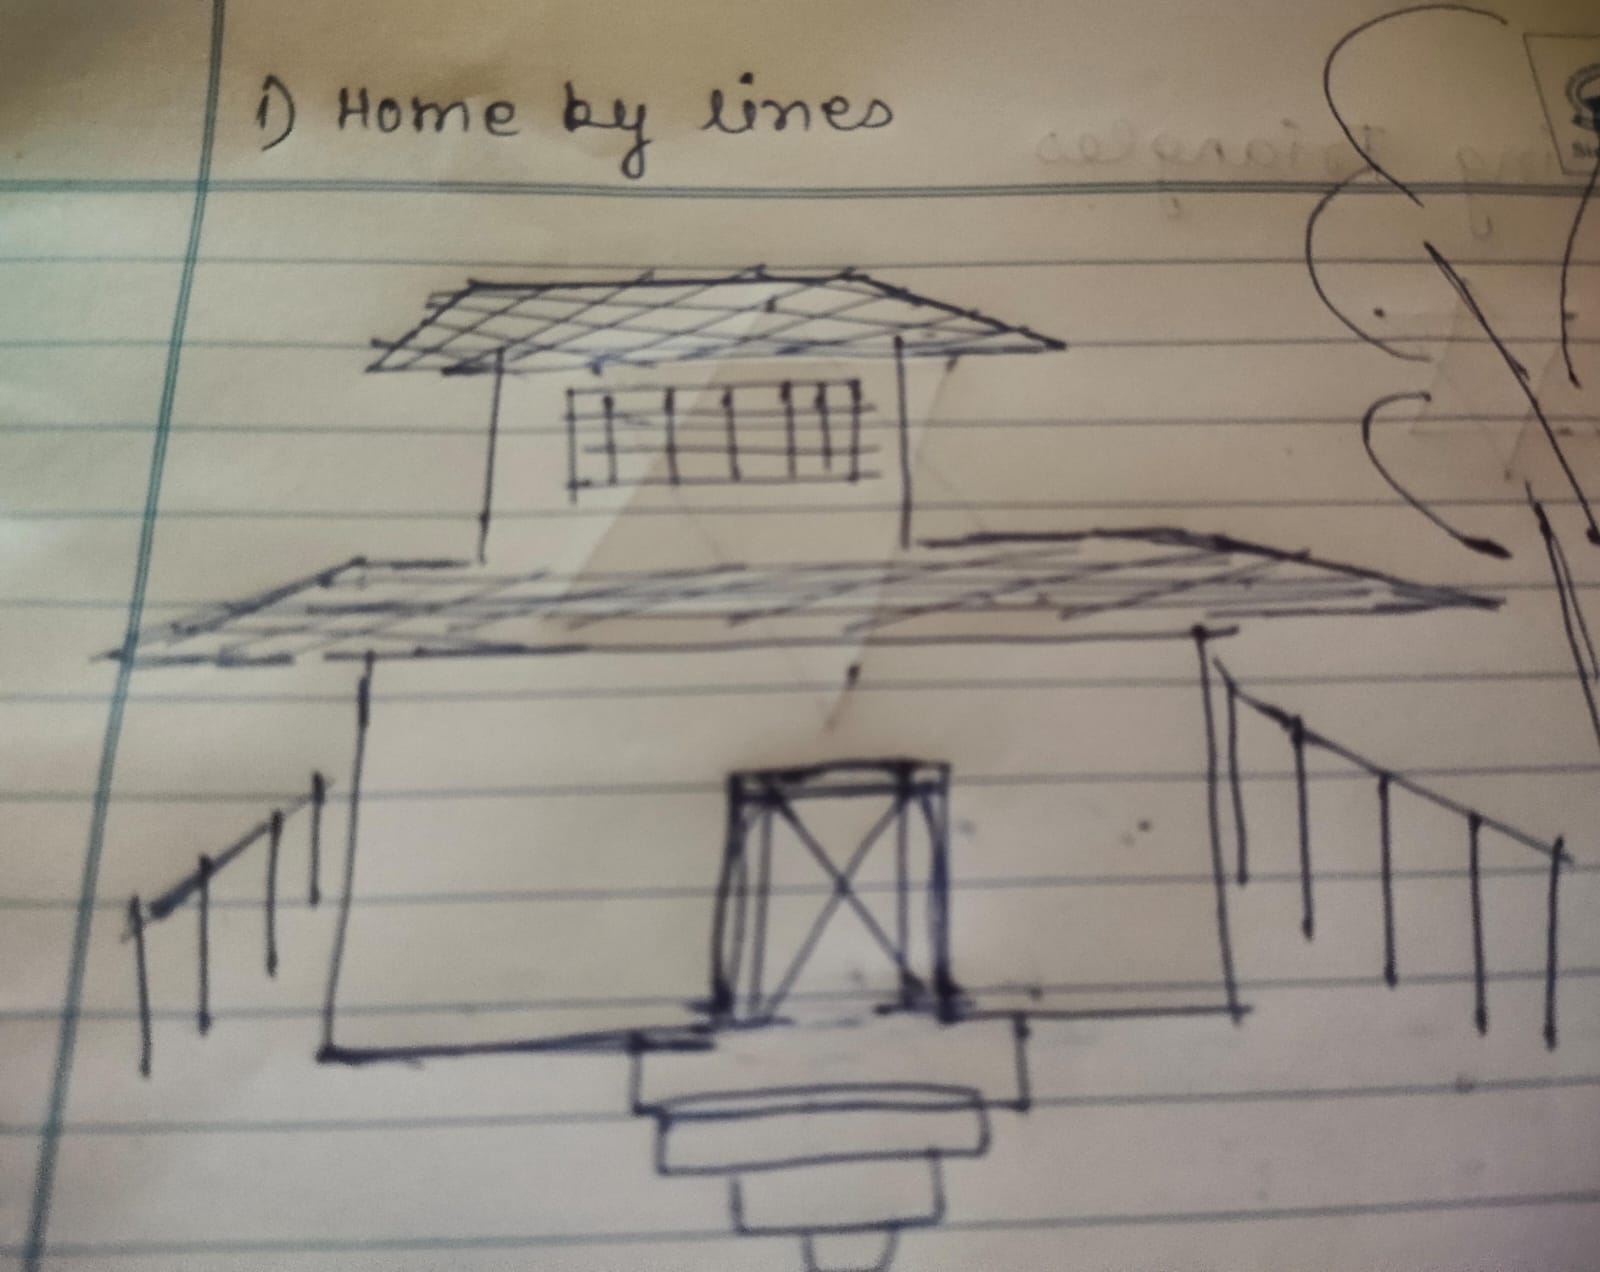 1) Home by lines